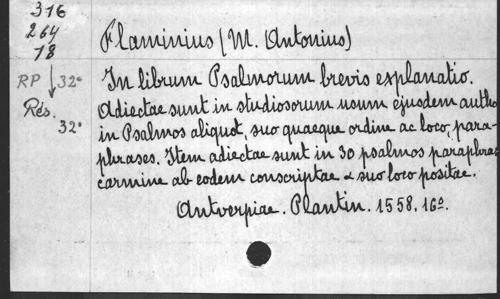 316
264
18
Flaminius (M. Antonius)
RP ↓ 32º
Rés. 32º
In librum Psalmorum brevis explanatio.
Adiectae sunt in studiosorum usum ejusdem autho
in Psalmos aliquot, suo quaeque ordine ac loco, para-
phrases. Item adiectae sunt in 30 psalmos paraphras
carmine ab eodem conscriptae & suo loco positae.
Antverpiae. Plantin. 1558. 16º.